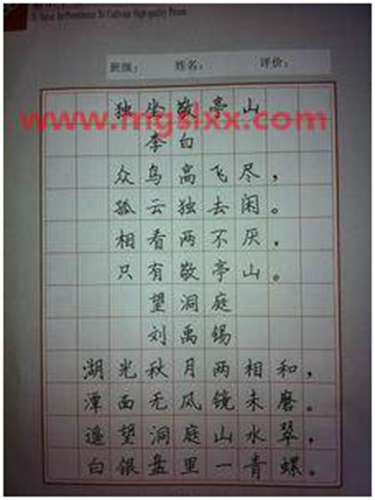 To Cultivate High-quality Person
班级： 姓名： 评价：
独坐敬亭山
www.mgslxx.com
李白
众鸟高飞尽，
孤云独去闲。
相看两不厌，
只有敬亭山。
望洞庭
刘禹锡
湖光秋月两相和，
潭面无风镜未磨。
遥望洞庭山水翠，
白银盘里一青螺。